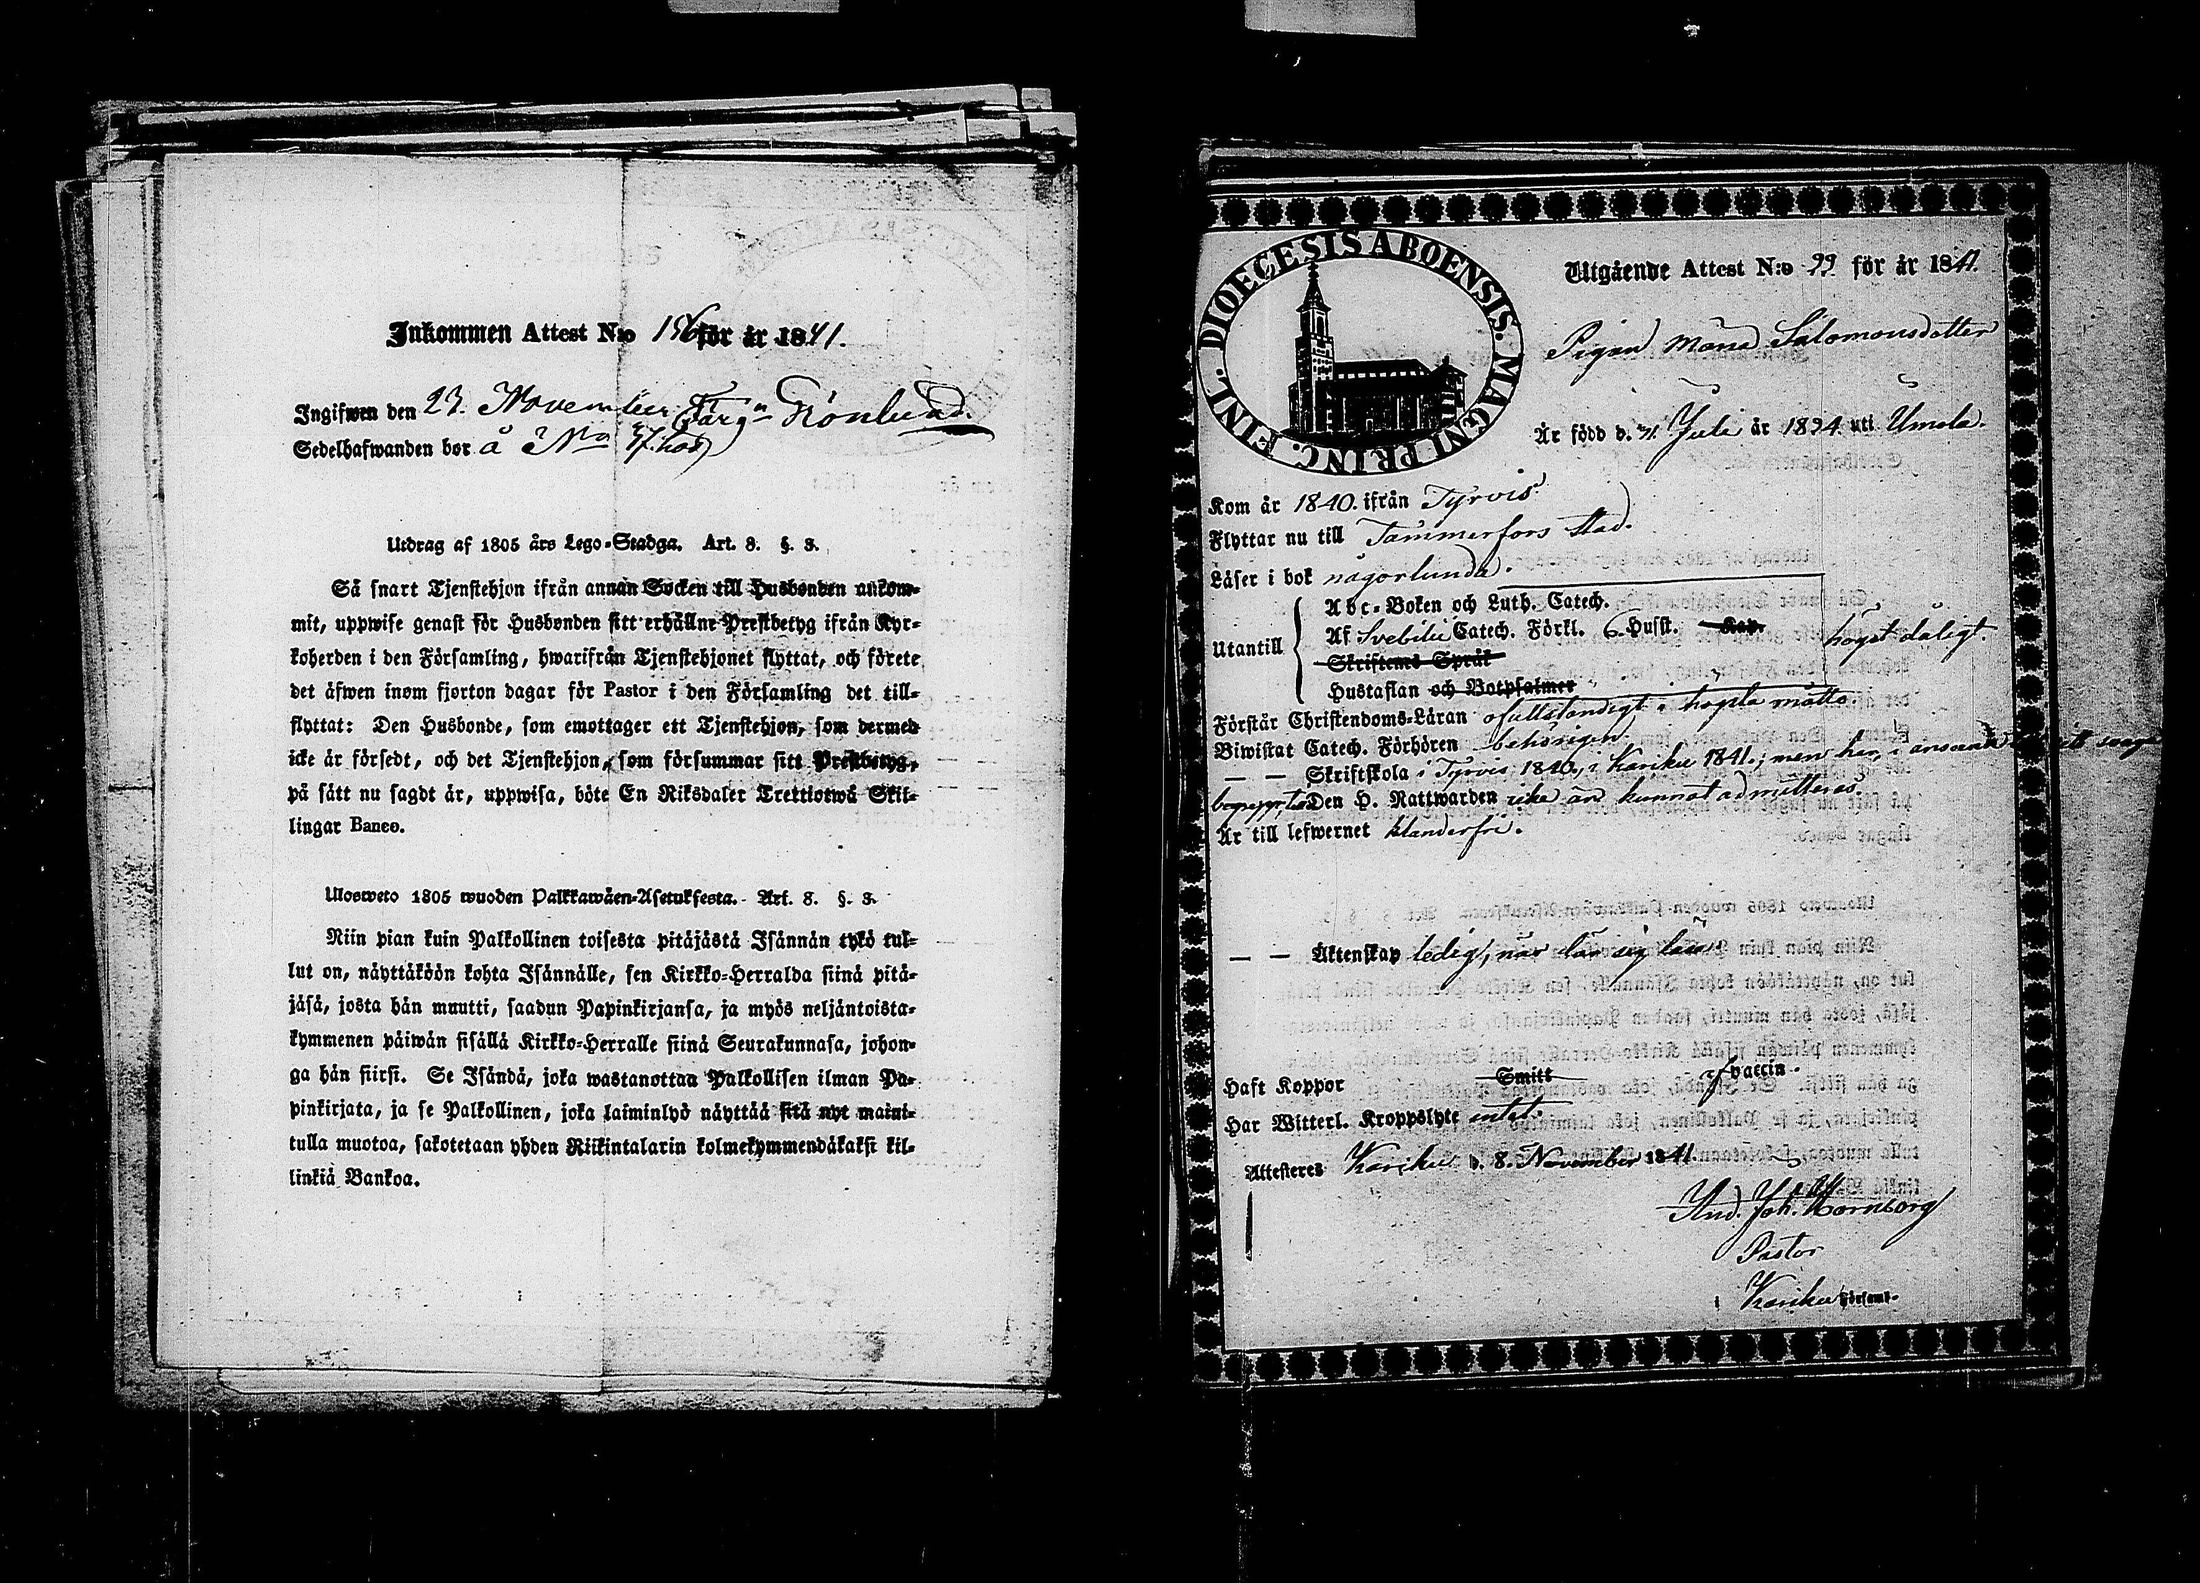 Inkommen Attest N:o 156 för år 1841.
Ingifwen den 23. November Färg:n Grönlund.
Sedelhafwanden bor å N:o
Utdrag af 1805 års Lego-Stadga. Art. 8. §. 3.
Så snart Tjenstehjon ifrån annan Socken till Husbonden ankom-
mit, uppwise genast för Husbonden sitt erhållne Prestbetyg ifrån Kyr-
koherden i den Församling, hwarifrån Tjenstehjonet flyttat, och förete
det äfwen inom fjorton dagar för Pastor i den Församling det till-
flyttat: Den Husbonde, som emottager ett Tjenstehjon, som dermed
icke är försedt, och det Tjenstehjon, som försummar sitt Prestbetyg,
på sätt nu sagdt är, uppwisa, böte En Riksdaler Trettiotwå Skil-
lingar Banco.
Ulosweto 1805 wuoden Palkkawäen-Asetuksesta. Art. 8. §. 3.
Niin pian kuin Palkollinen toisesta pitäjästä Isännän tykö tul-
lut on, näyttäköön kohta Isännälle, sen Kirkko-Herralda siinä pitä-
jäsä, josta hän muutti, saadun Papinkirjansa, ja myös neljäntoista-
kymmenen päiwän sisällä Kirkko-Herralle siinä Seurakunnasa, johon-
ga hän siirsi. Se Isändä, joka wastanottaa Palkollisen ilman Pa-
pinkirjata, ja se Palkollinen, joka laiminlyö näyttää sitä nyt maini-
tulla muotoa, sakotetaan yhden Riikintalarin kolmekymmendäkaksi kil-
linkiä Bankoa.
FINL. DIOECESIS ABOENSIS. MAGNI PRINC.
Utgående Attest N:o 99 för år 1841.
Pigan Maria Salomonsdotter
Är född d. 31 Juli år 1824 uti Umola.
Kom år 1840. ifrån Tyrvis
Flyttar nu till Tammerfors stad.
Läser i bok någorlunda.
Abc-Boken och Luth. Catech.
Utantill Af Svebilii Catech. Förkl. 6. Husst. Kap. högst dåligt.
Skriftens Språk
Hustaflan och Botpsalmer
Förstår Christendoms-Läran ofullständigt i högsta måtto.
Biwistat Catech. Förhören behörigen.
— — Skriftskola i Tyrvis 1840, i Kariku 1841.; men har, i anseende
Den H. Nattwarden icke än kunnat admitteras.
Är till lefwernet klanderfri.
— — Äktenskap ledig,
Haft Koppor Smitt vaccin.
Har Witterl. Kroppslyte intet.
Attesteres Kariku d. 8. November 1841.
And. Joh. Hornborg
Pastor
i Kariku Församl.